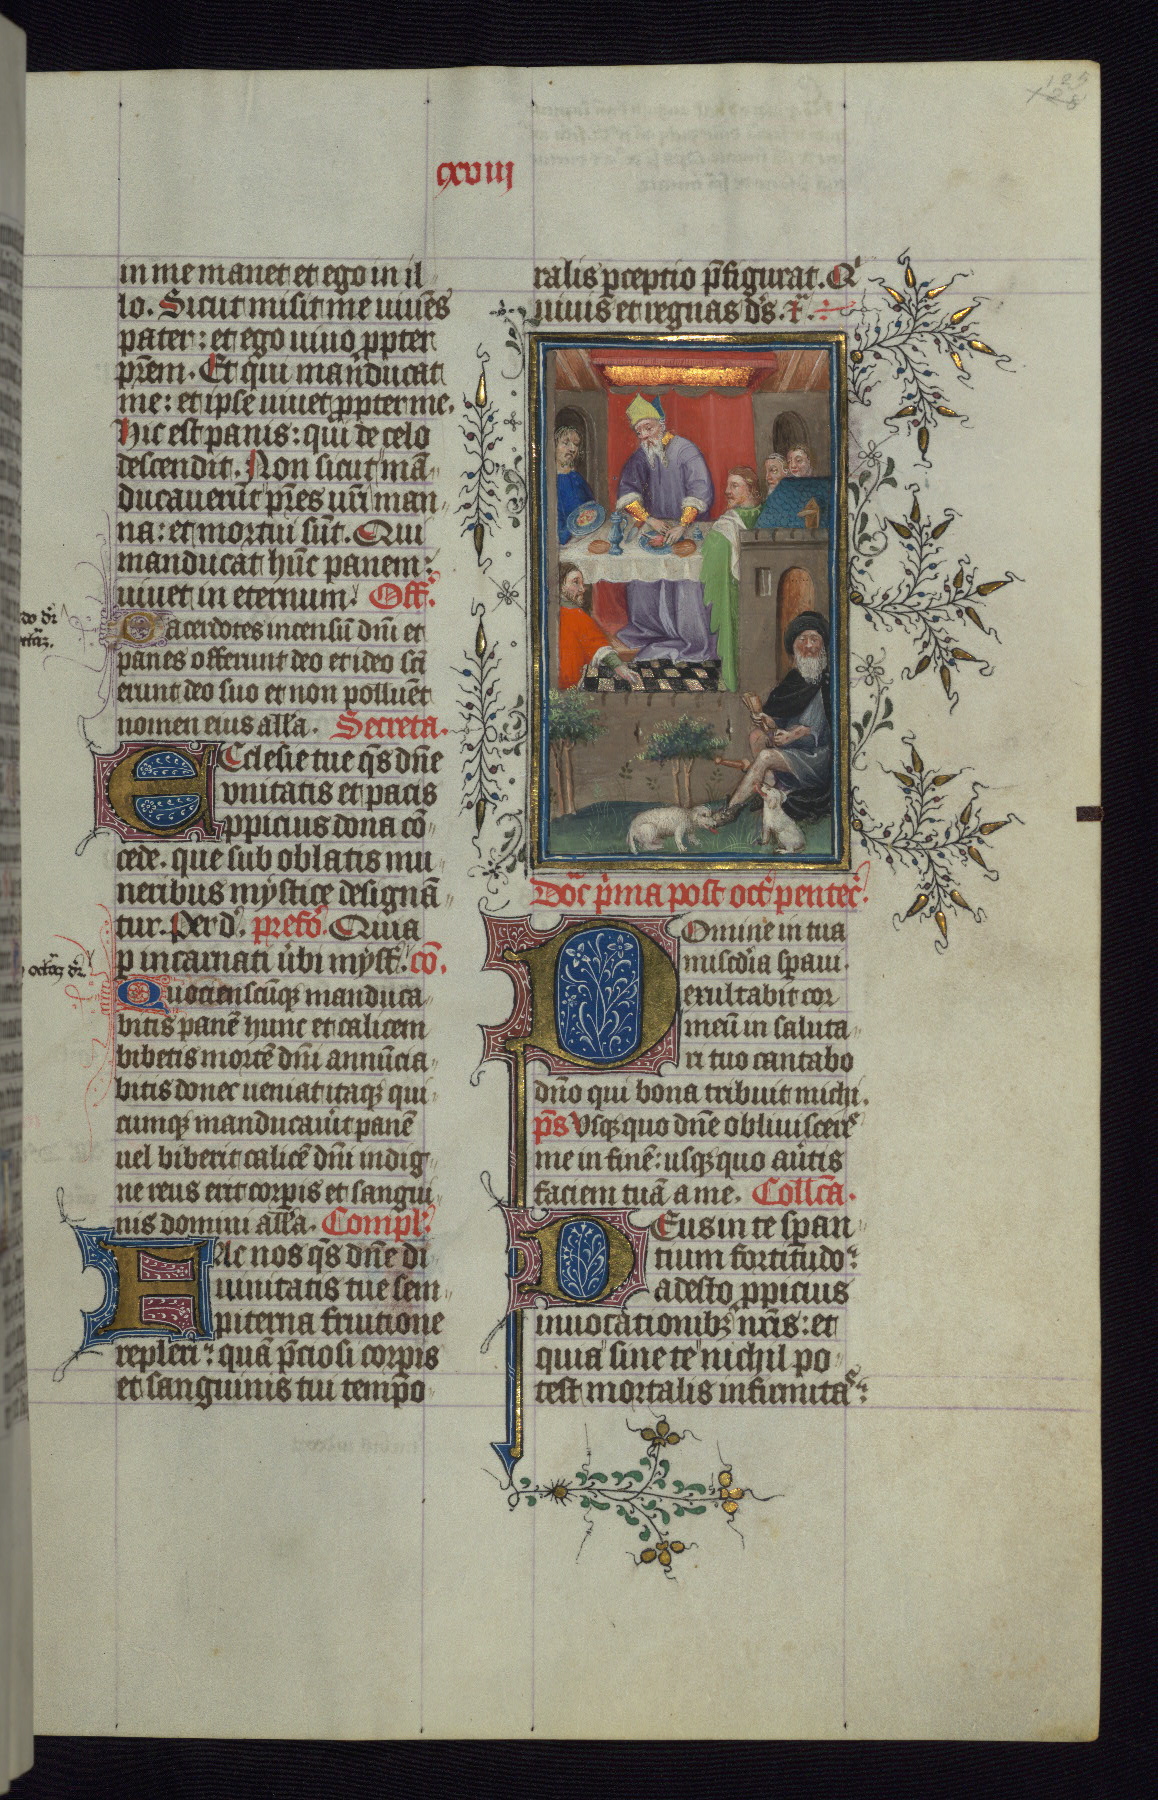 cxviii
in me manet et ego in il
lo. Sicut misit me uiuēs
pater: et ego uiuo ꝓpter
prēm. Et qui manducat
me: et ipse uiuet ꝓpter me.
Hic est panis: qui de celo
descendit. Non sicut mā
ducauerūt prēs ur̄i man
na: et mortui sūt. Qui
manducat hūc panem:
uiuet in eternum. Off̄.
Sacerdotes incensū dn̄i et
panes offerunt deo et ideo scī
erunt deo suo et non polluēt
nomen eius all'a. Secreta.
Ecclesie tue qs̄ dn̄e
vnitatis et pacis
ꝓpicius dona cō
cede. que sub oblatis mu
neribus mystice designā
tur. Per d. prefō. Quia
ꝑ incarnati ubi myst̄. cō.
Quocienscūqꝫ manduca
bitis panē hunc et calicem
bibetis mortē dn̄i annūcia
bitis donec ueniat itaqꝫ qui
cumqꝫ manducauit panē
uel biberit calicē dn̄i indig
ne reus erit corꝑis et sangui
nis domini all'a. Compl.
Fac nos qs̄ dn̄e di
uinitatis tue sem
piterna fruitione
repleri: quā p̄ciosi corꝑis
et sanguinis tui tempo
ralis ꝑceptio p̄figurat. Q
uiuis et regnas d's. ꝑ.
Dōc p̄ma post oct̄ pentec̄.
Domine in tua
misc̄dia sꝑaui.
exultabit cor
meū in saluta
ri tuo cantabo
dn̄o qui bona tribuit michi.
p̄s Vsqꝫquo dn̄e obliuisceris
me in finē: usqꝫquo au̓tis
faciem tuā a me. Coll̄ca.
Deus in te sꝑan
tium fortitudo:
adesto ꝓpicius
inuocationibꝫ nr̄is: et
quia sine te nichil po
test mortalis infirmitas: